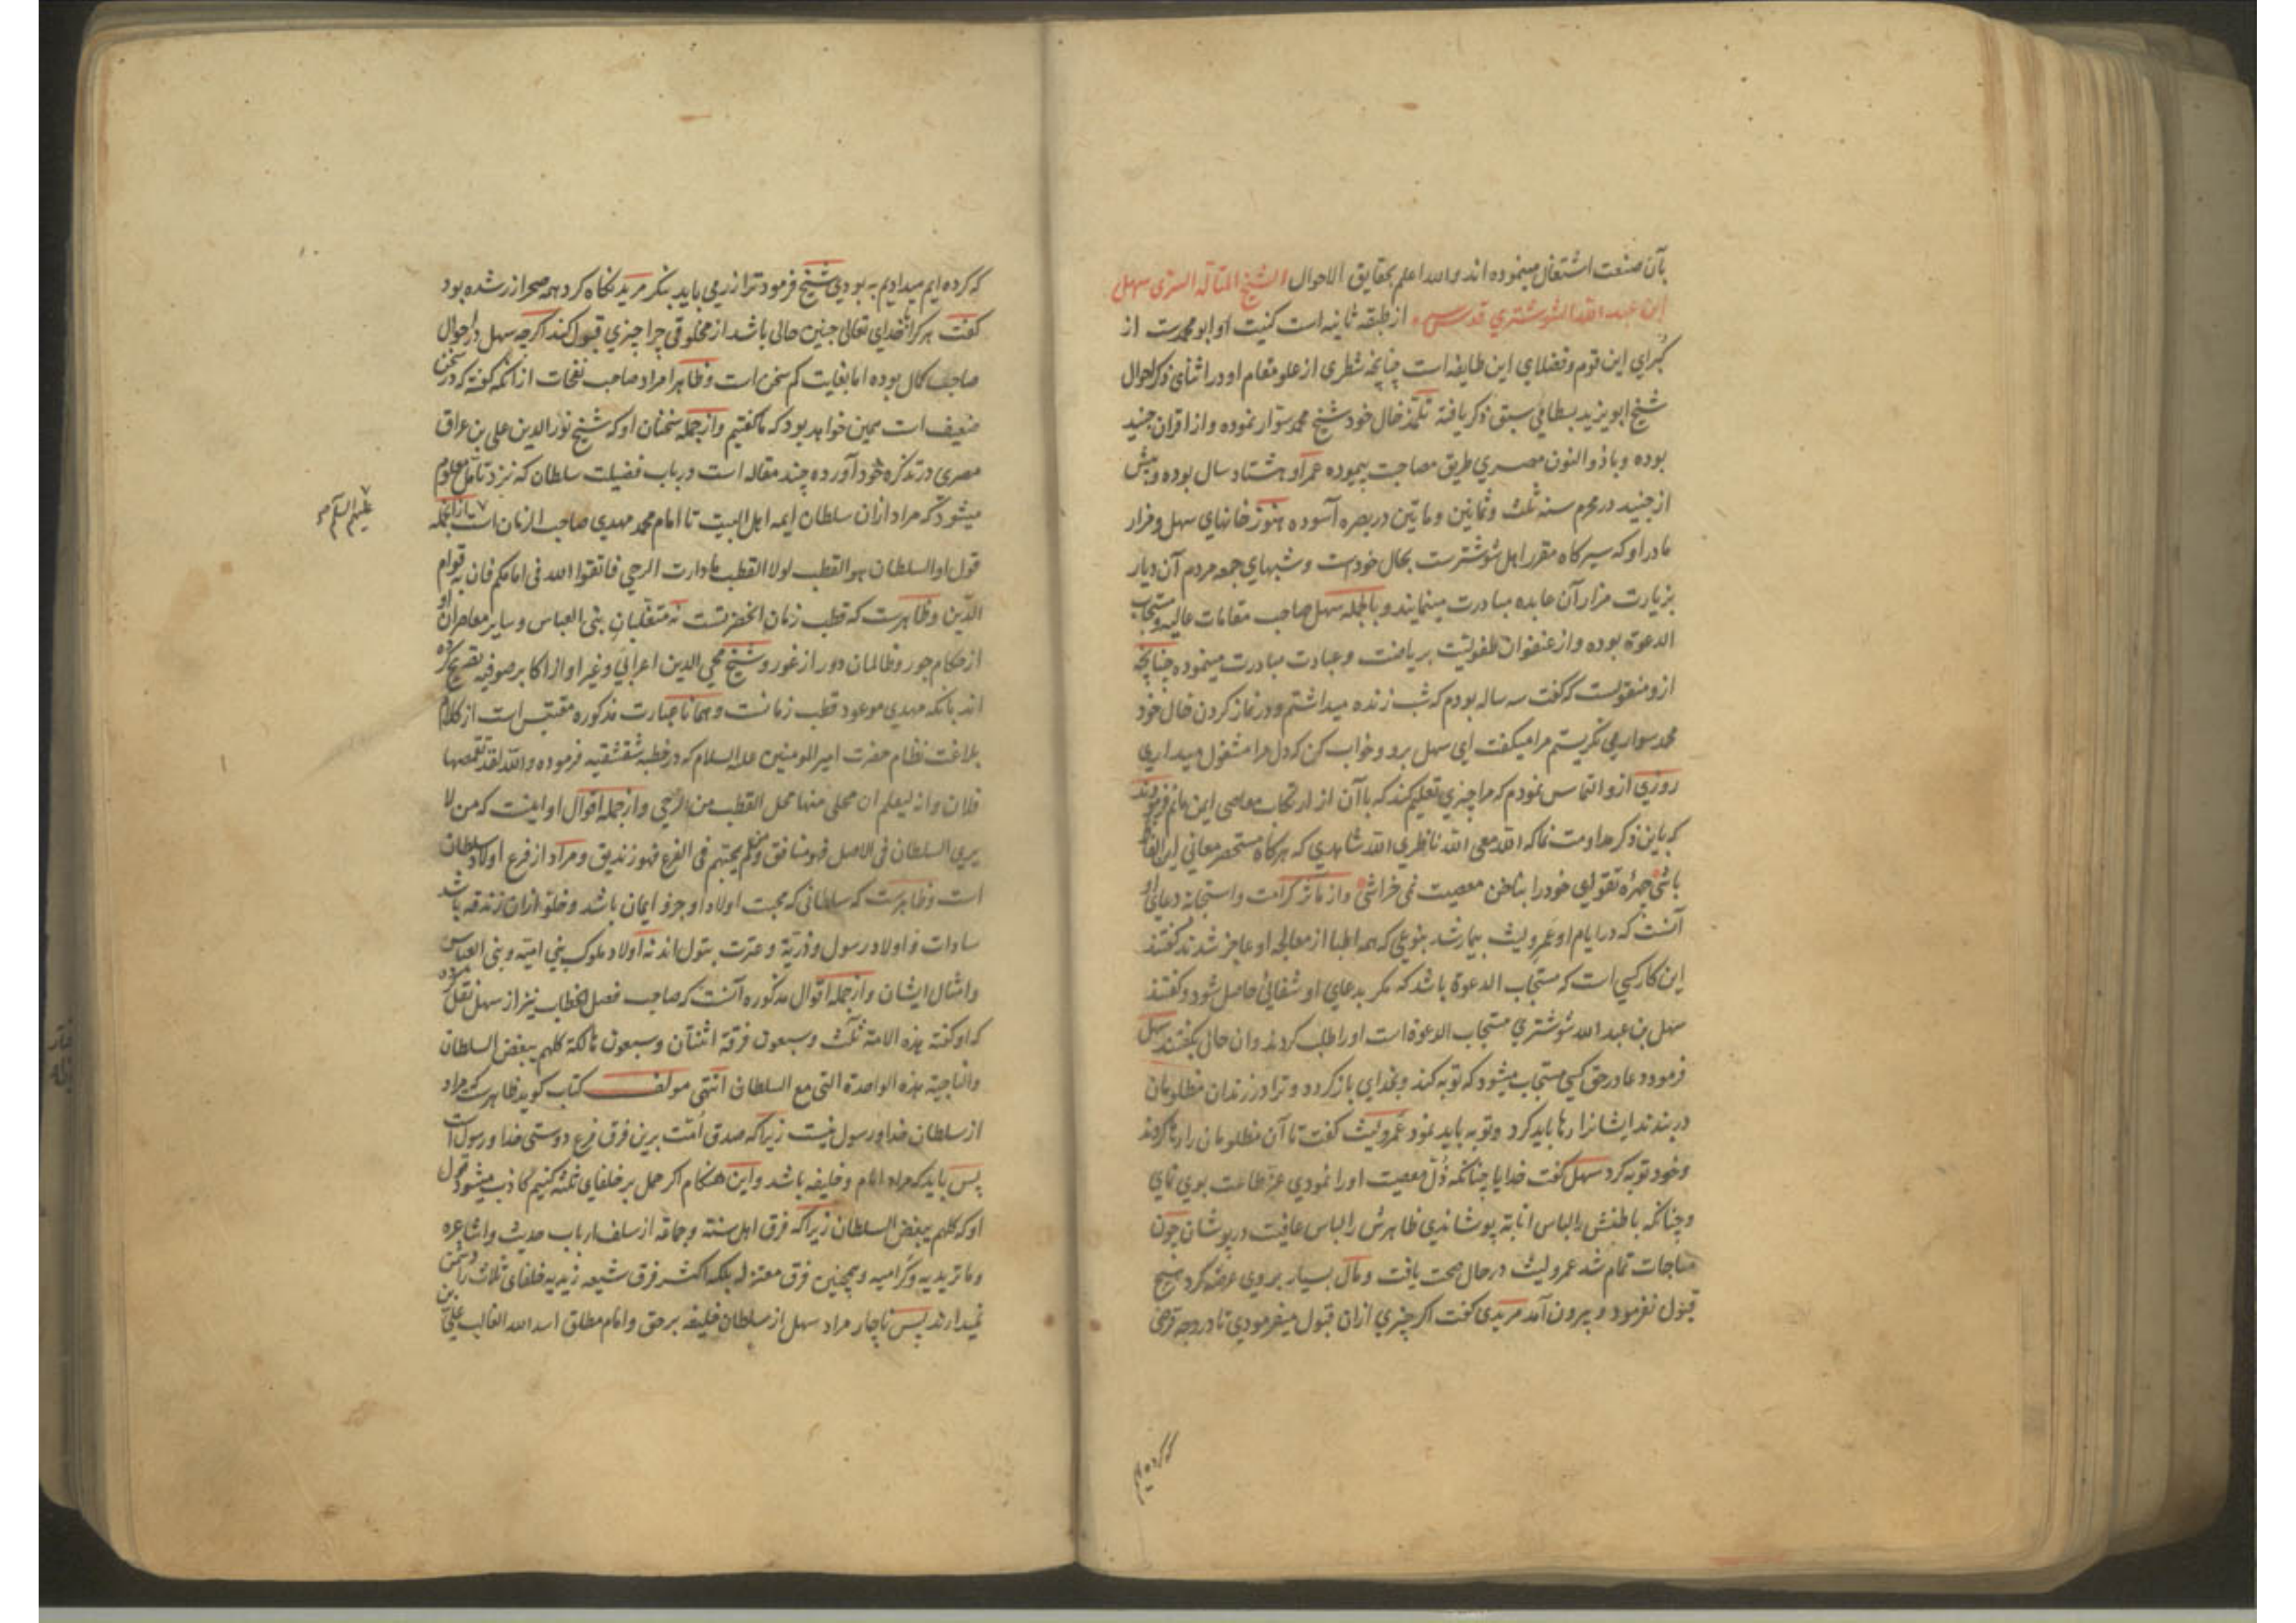 بآن صنعت اشتغال مینموده اند والله اعلم بحقایق الاحوال الشیخ المتأله السری سهل
ابن عبد الله الشوشتری قدس سره از طبقه ثانیه است کنیت او ابو محمدست از
کبرای این قوم وفضلای این طایفه است چنانچه شطری از علو مقام او در اثنای ذکر احوال
شیخ ابو یزید بسطامی سبق ذکر یافته تلمذ خال خود شیخ محمد سوار نموده واز اقران جنید
بوده وبا ذو النون مصری طریق مصاحبت پیموده عمر او هشتاد سال بوده وپیش
از جنید در محرم سنه ثلث وثمانین وماتین در بصره آسوده هنوز خانهای سهل ومزار
مادر او که سیرکاه مقرر اهل شوشترست بحال خودست وشبهای جمعه مردم آن دیار
بزیارت مزار آن عابده مبادرت مینمایند وبالجمله سهل صاحب مقامات عالیه ومستجاب
الدعوة بوده واز عنفوان طفولیت بریاضت وعبادت مبادرت مینموده چنانچه
ازو منقولست که گفت سه ساله بودم که شب زنده میداشتم ودر نماز کردن خال خود
محمد سوار می نگریستم مرا میگفت ای سهل برو وخواب کن که دل مرا مشغول میداری
روزی ازو التماس نمودم که مرا چیزی تعلیم کند که با آن از ارتکاب معاصی ایمن مانم فرمودند
که باین ذکر مداومت نما که الله معی الله ناظری الله شاهدی که هرگاه مستحضر معانی این الفاظ
باشی چهره تقوای خود را بناخن معصیت نمی خراشی واز مآثر کرامت واستجابة دعای او
آنست که در ایام او عمرو لیث بیمار شد بنوعی که همه اطبا از معالجه او عاجز شدند گفتند
این کار کسی است که مستجاب الدعوة باشد که مکر بدعای او شفائی حاصل شود وگفتند
سهل بن عبد الله شوشتری مستجاب الدعوة است او را طلب کردند وآن حال بگفتند سهل
فرمود دعا در حق کسی مستجاب میشود که توبه کند وبخدای باز گردد وترا در زندان مظلومان
در بندند ایشانرا رها باید کرد وتوبه باید نمود عمرو لیث گفت تا آن مظلومان را رها کردند
وخود توبه کرد سهل گفت خدایا چنانکه ذل معصیت او را نمودی عز طاعت بوی نمای
وچنانکه باطنش را لباس انابة پوشاندی ظاهرش را لباس عافیت در پوشان چون
مناجات تمام شد عمرو لیث در حال صحت یافت ومال بسیار بروی عرضه کرد هیچ
قبول نفرمود وبیرون آمد مریدی گفت اگر چیزی ازان قبول میفرمودی تا در وجه قرضی
که کرده ایم
که کرده ایم میدادیم به بودی شیخ فرمود ترا زر می باید بنگر مرید نگاه کرد همه صحرا زر شده بود
گفت هر کرا با خدای تعالی چنین حالی باشد از مخلوقی چرا چیزی قبول کند اگر چه سهل در احوال
صاحب کمال بوده اما بغایت کم سخن است وظاهرا مراد صاحب نفحات از آنکه گفته که در سخن
ضعیف است همین خواهد بود که ما گفتیم واز جمله سخنان او که شیخ نور الدین علی بن عراق
مصری در تذکره خود آورده چند مقاله است در باب فضیلت سلطان که نزد تأمل معلوم
میشود که مراد ازان سلطان ایمه اهل البیت تا امام محمد مهدی صاحب الزمان است از آنجمله
علیهم السلام
قول او السلطان هو القطب لولا القطب ما دارت الرحی فاتقوا الله فی امامکم فان به قوام
الدین وظاهرست که قطب زمان آنحضرتست نه متغلبان بنی العباس وسایر معاصران او
از حکام جور وظالمان دور از غور وشیخ محیی الدین اعرابی وغیر او از اکابر صوفیه تصریح کرده
اند بانکه مهدی موعود قطب زمانست وهمانا عبارت مذکوره مقتبس است از کلام
بلاغت نظام حضرت امیر المومنین علیه السلام که در خطبه شقشقیه فرموده والله لقد تقمصها
فلان وانه لیعلم ان محلی منها محل القطب من الرحی واز جمله اقوال او اینست که من لا
یری السلطان فی الاصل فهو منافق ومن لم یحبهم فی الفرع فهو زندیق ومراد از فرع اولاد سلطان
است وظاهرست که سلطانی که محبت اولاد او جزو ایمان باشد وخلو ازان زندقه باشد
سادات واولاد رسول وذریة وعترت بتول اند نه اولاد ملوک بنی امیة وبنی العباس
وامثال ایشان واز جمله اقوال مذکوره آنست که صاحب فصل الخطاب نیز از سهل نقل کرده
که او گفته هذه الامة ثلث وسبعون فرقة اثنتان وسبعون هالکة کلهم یبغض السلطان
والناجیة هذه الواحدة التی مع السلطان انتهی مولف کتاب گوید ظاهرست که مراد
از سلطان خدا ورسول نیست زیرا که صدق امت برین فرق فرع دوستی خدا ورسول است
پس باید که مراد امام وخلیفه باشد واین هنگام اگر حمل بر خلفای ثلثه کنیم کاذب میشود قول
او که کلهم یبغض السلطان زیرا که فرق اهل سنة وجماعة از سلف ارباب حدیث واشاعره
وماتریدیه وکرامیه وهمچنین فرق معتزله بلکه اکثر فرق شیعه زیدیه خلفای ثلاث را دشمن
نمیدارند پس ناچار مراد سهل از سلطان خلیفه بر حق وامام مطلق اسد الله الغالب علی بن